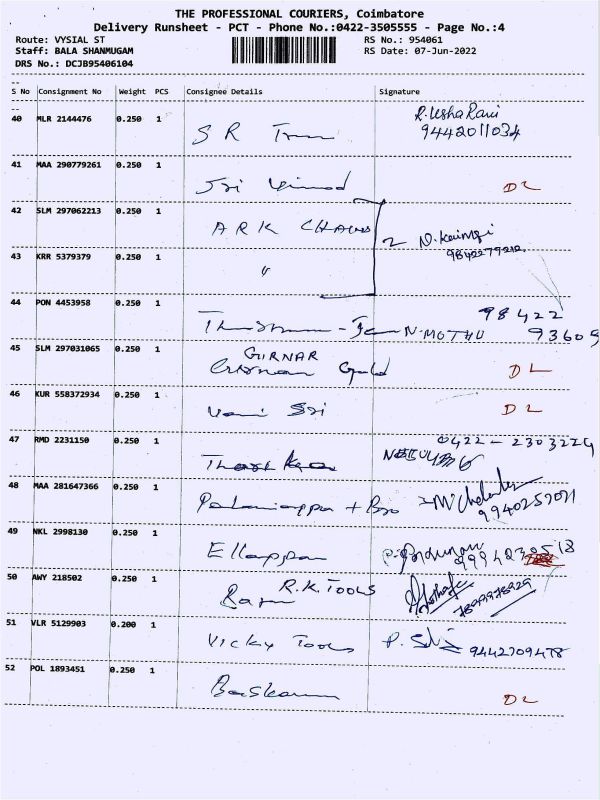 THE PROFESSIONAL COURIERS, Coimbatore
Delivery Runsheet - PCT - Phone No.:0422-3505555 - Page No.:4
Route: VYSIAL ST
RS No.: 954061
Staff: BALA SHANMUGAM
RS Date: 07-Jun-2022
DRS No.: DCJB95406104
S No Consignment No Weight PCS Consignee Details Signature
40 MLR 2144476 0.250 1 S R R. Usha Rani
9442011034
41 MAA 290779261 0.250 1 Sri Vinod DL
42 SLM 297062213 0.250 1 ARK
2
9842279212
43 KRR 5379379 0.250 1 "
44 PON 4453958 0.250 1 N. MOTHU
98422
93605
45 SLM 297031065 0.250 1 GIRNAR
Gold DL
46 KUR 558372934 0.250 1 Vani Sri DL
47 RMD 2231150 0.250 1
0422 - 2303224
48 MAA 281647366 0.250 1 Palaniappa + Bro
9940257071
49 NKL 2998130 0.250 1 Ellappan
50 AWY 218502 0.250 1 R.K. TOOLS
51 VLR 5129903 0.200 1 Vicky Tools
9442709478
52 POL 1893451 0.250 1 Baskaran DL